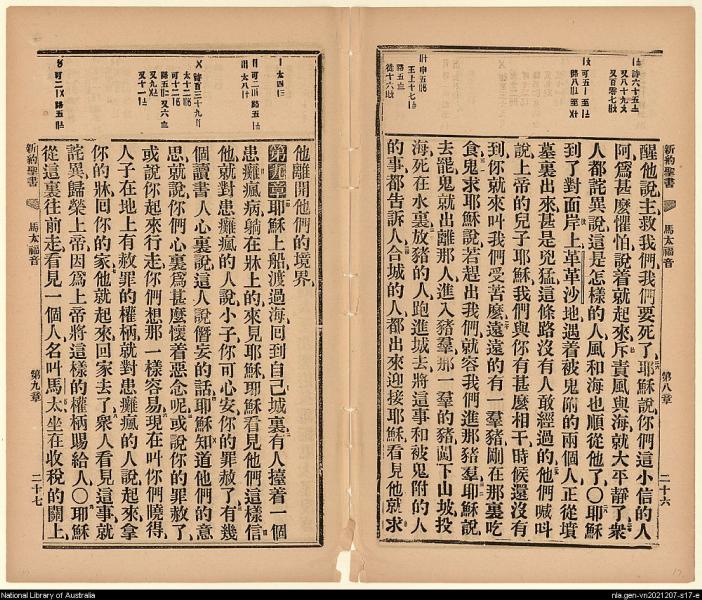 新約聖書
馬太福音
第八章
二十六
醒他說主救我們我們要死了耶穌說你們這小信的人
阿爲甚麼懼怕說着就起來斥責風與海就大平靜了衆
人都詫異說這是怎樣的人風和海也順從他了〇耶穌
到了對面岸上革革沙地遇着被鬼附的兩個人正從墳
墓裏出來甚是兇猛這條路沒有人敢經過的他們喊呌
說上帝的兒子耶穌我們與你有甚麼相干時候還沒有
到你就來呌我們受苦麼遠遠的有一羣豬剛在那裏吃
食鬼求耶穌說若趕出我們就容我們進那豬羣耶穌說
去罷鬼就出離那人進入豬羣那一羣的豬闖下山坡投
海死在水裏放豬的人跑進城去將這事和被鬼附的人
的事都告訴人合城的人都出來迎接耶穌看見他就求
他離開他們的境界
第九章耶穌上船渡過海回到自己城裏有人擡着一個
患癱瘋病躺在牀上的來見耶穌耶穌看見他們這樣信
他就對患癱瘋的人說小子你可心安你的罪赦了有幾
個讀書人心裏說這人說僭妄的話耶穌知道他們的意
思就說你們心裏爲甚麼懷着惡念呢或說你的罪赦了
或說你起來行走你們想那一樣容易現在呌你們曉得
人子在地上有赦罪的權柄就對患癱瘋的人說起來拿
你的牀回你的家他就起來回家去了衆人看見這事就
詫異歸榮上帝因爲上帝將這樣的權柄賜給人〇耶穌
從這裏往前走看見一個人名呌馬太坐在收稅的關上
新約聖書
馬太福音
第九章
二十七
National Library of Australia
nla.gen-vn2021207-s17-e